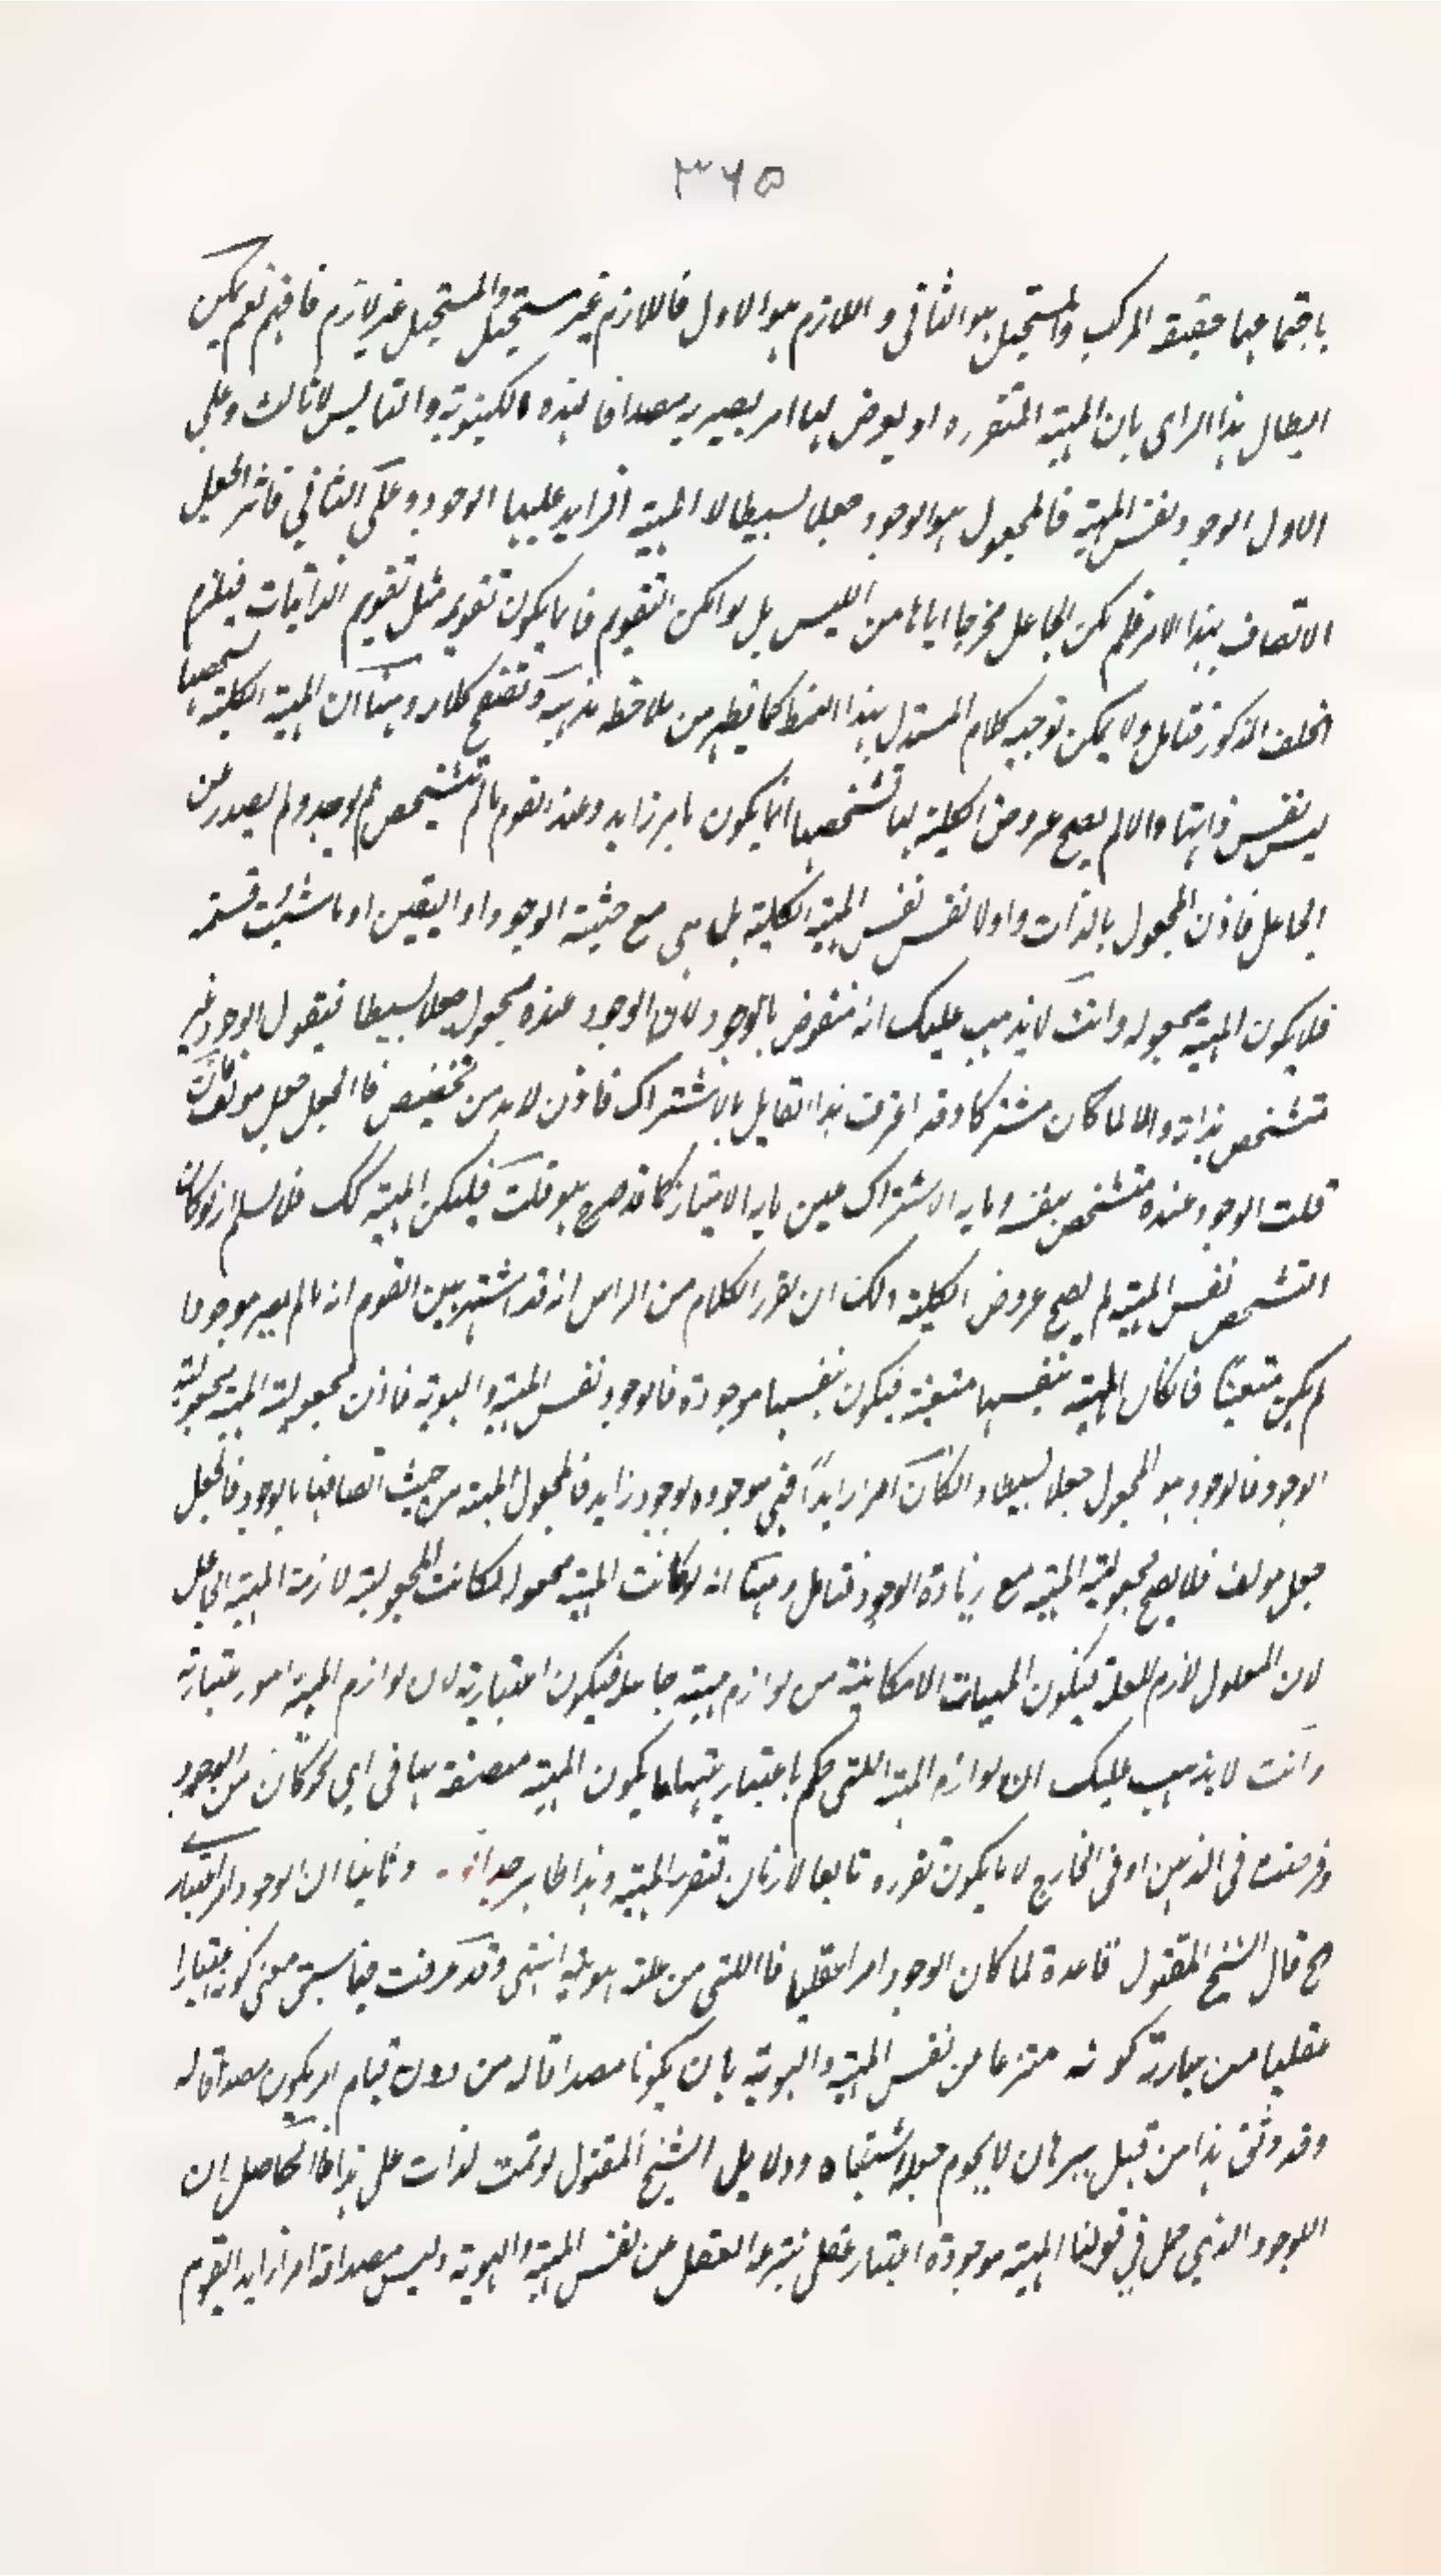 ٣٦٥
باجتماعهما حقيقة المركب والمستحيل هو الثاني و اللازم هو الاول فاللازم غير مستحيل والمستحيل غير لازم فافهم نعم يمكن
ابطال هذا الراى بان المهية المتقررة او يعرض لها امر يصير به مصداقا لهذه الكينونة والتاليس لا ثالث وعلى
الاول الوجود نفس المهية فالمجعول هو الوجود جعلا بسيطا لا المهية الزايد عليها الوجود وعلى الثاني فاثر الجعل
الاتصاف بهذا الامر فلم يكن الجاعل مخرجا اياها من الليس بل لو امكن التقوم فانما يكون تقويمه مثل تقويم الذاتيات فيلزم
الخلف المذكور فتامل ولا يمكن توجيه كلام المستدل بهذا النمط كما يظهر من ملاحظة مذهبه وتصفح كلامه ومنها ان المهية الكلية تشخصها
ليس نفس ذاتها والا لم يصح عروض الكلية لها تشخصها انما يكون بامر زايد وعند القوم ما لم تتشخص لم يوجد ولم يصدر عن
الجاعل فاذن المجعول بالذات واولا نفس نفس المهية الكلية بل هى مع حيثية الوجود او التعين او ما شئت فسمه
فلا يكون المهية مجعولة وانت لا يذهب عليك انه منقوض بالوجود لان الوجود عنده مجعول جعلا بسيطا فيقول الوجود غير
متشخص بذاته والا لما كان مشتركا وقد اعترفت هذا القايل بالاشتراك فاذن لا بد من تخصيص فالجعل جعل مولف فان
قلت الوجود عنده متشخص بنفسه وما به الاشتراك عين ما به الامتياز كما قد صرح به قلت فليكن المهية كك فلا نسلم انه لو كان
التشخص نفس المهية لم يصح عروض الكلية ولك ان تقرر الكلام من الراس انه قد اشتهر بين القوم انه ما لم يصر موجودا
لم يكن متعينا فان كان المهية بنفسها متعينة فيكون بنفسها موجودة فالوجود نفس المهية والهوية فاذن مجعولية المهية مجعولية
الوجود فالوجود هو المجعول جعلا بسيطا وان كان امرا زايدا فهي موجودة بوجود زايد فالمجعول المهية من حيث اتصافها بالوجود فالجعل
جعل مولف فلا يصح مجعولية المهية مع زيادة الوجود فتامل ومنها انه لو كانت المهية مجعولة لكانت المجعولية لازمة المهية الجاعل
لان المعلول لازم للعلة فيكون المهيات الامكانية من لوازم مهية جاعلها فيكون اعتبارية لان لوازم المهية امور اعتبارية
وانت لا يذهب عليك ان لوازم المهية اللتى حكم باعتباريتها ما يكون المهية متصفة بها فى اى نحو كان من الوجود
وفرضت فى الذهن او فى الخارج لا ما يكون تقرره تابعا لازمان تقرر المهية وهذا ظاهر جدا وثانيا ان الوجود امر اعتبارى
ح قال الشيخ المقتول قاعدة لما كان الوجود امرا عقليا فاللتى من علته هويته انتهى وقد عرفت فيما سبق معنى كونه اعتباريا
عقليا من عبارة كونه منتزعا من نفس المهية والهوية بان يكونا مصداقا له من دون قيام امر يكون مصداقا له
وقد وثق هذا من قبل ببرهان لا يحوم حوله اشتباه ودلايل الشيخ المقتول لو تمت لدلت على هذا فالحاصل ان
الوجود الذي حمل في قولنا المهية موجودة اعتبار عقلى ينتزعه العقل من نفس المهية والهوية وليس مصداقه امرا زايد القوم